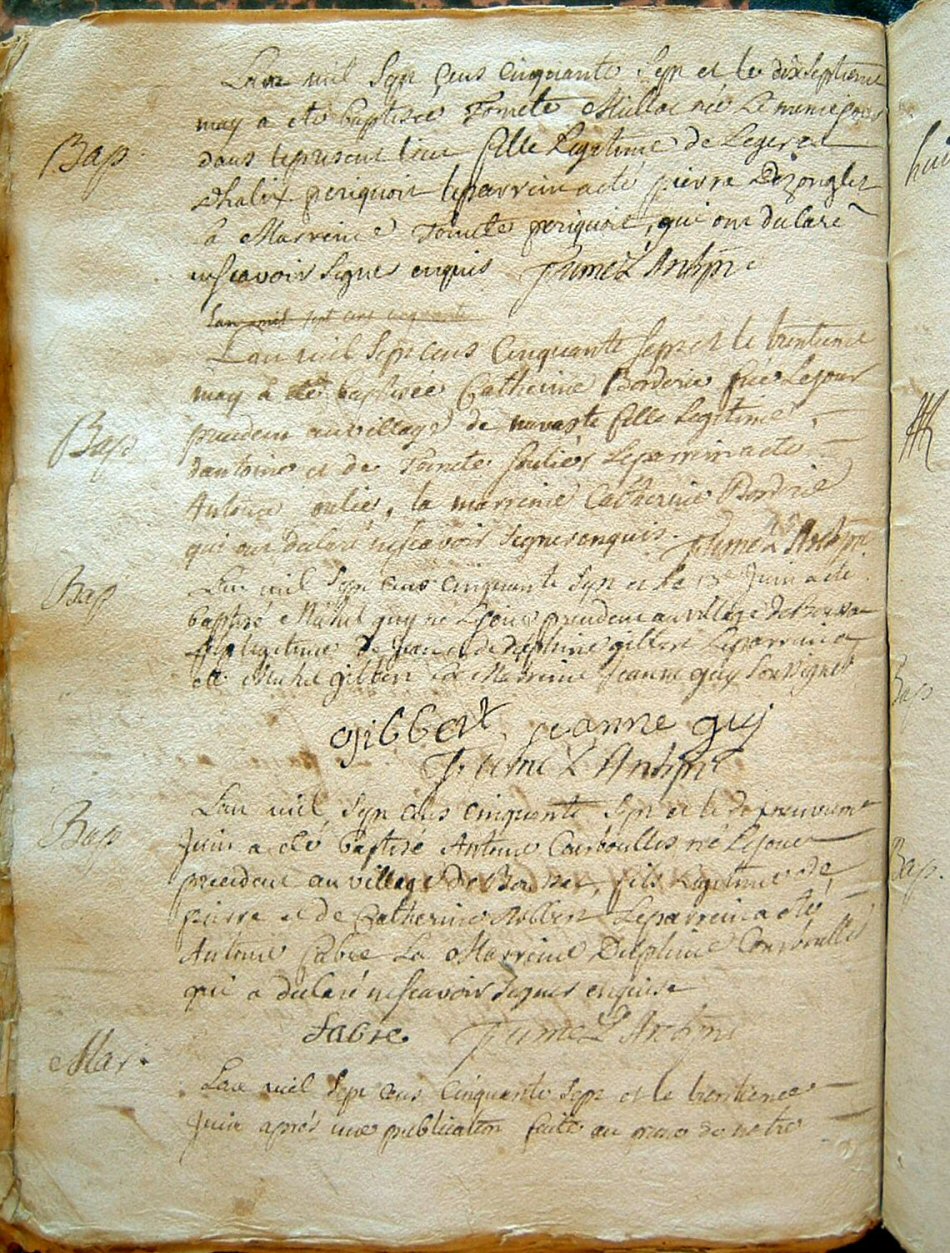 L'an mil Sept Cens Cinquante Sept et le dixseptieme
Bap. may a eté baptisée Toinete née Le meme jour
dans lepresent lieu fille Legitime de Leger et
d'halix periquoit leparrein a eté pierre
la Marreine Toinete periquoit, qui ont declaré
nescavoir Signer enquis Jumel Archp.
Lan mil sept cens cinquante
L'an mil Sept cens Cinquante Sept et le trentieme
may a eté baptisée Catherine Borderie née Lejour
Bap. precedent auvillage de fille Legitime
dantoine et de Toinete Soulier Leparrein a eté
Antoine oulié, la marreine Catherine Bordrie
qui ont declaré nescavoir Signer enquis. Jumel Archp.
Bap L'an mil Sept cens cinquante Sept et le Juin a eté
baptisé Michel guy né Lejour precedent auvillage de
fils legitime de Jean et de delphine gilbert Leparrein a
eté Michel gilbert La Marreine Jeanne guy Sousignes
gibbert jeanne guy
Jumel Archp.
L'an mil Sept cens cinquante Sept et le dixneuvieme
Bap Juin a eté baptisé Antoine Courboulles né Lejour
precedent au village de fils Legitime de
pierre et de Catherine Leparrein a eté
Antoine fabre La Marreine Delphine Courboulles
qui a declaré nescavoir Signer enquise
fabre Jumel Archp.
Mar. L'an mil Sept cens Cinquante Sept et le trentieme
Juin aprés une publication faite au prone de notre